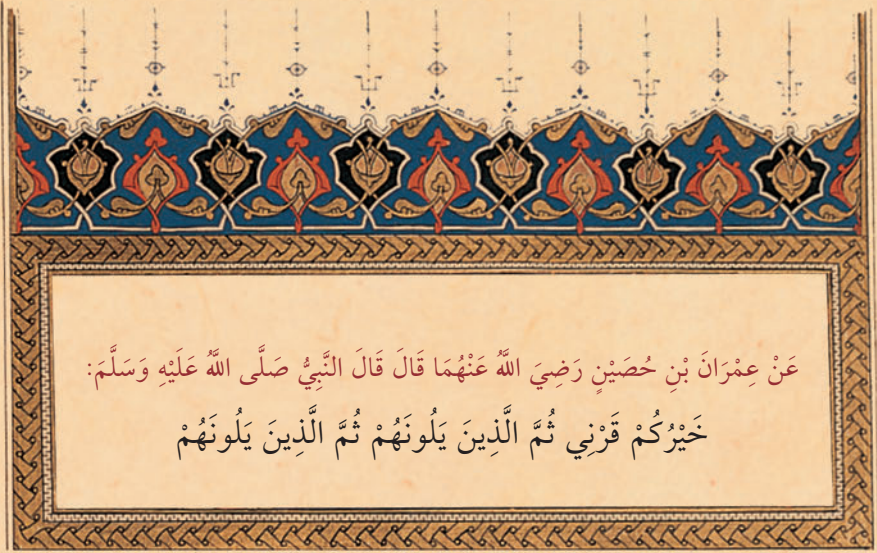 عَنْ عِمْرَانَ بْنِ حُصَيْنٍ رَضِيَ اللَّهُ عَنْهُمَا قَالَ قَالَ النَّبِيُّ صَلَّى اللَّهُ عَلَيْهِ وَسَلَّمَ:
خَيْرُكُمْ قَرْنِي ثُمَّ الَّذِينَ يَلُونَهُمْ ثُمَّ الَّذِينَ يَلُونَهُمْ